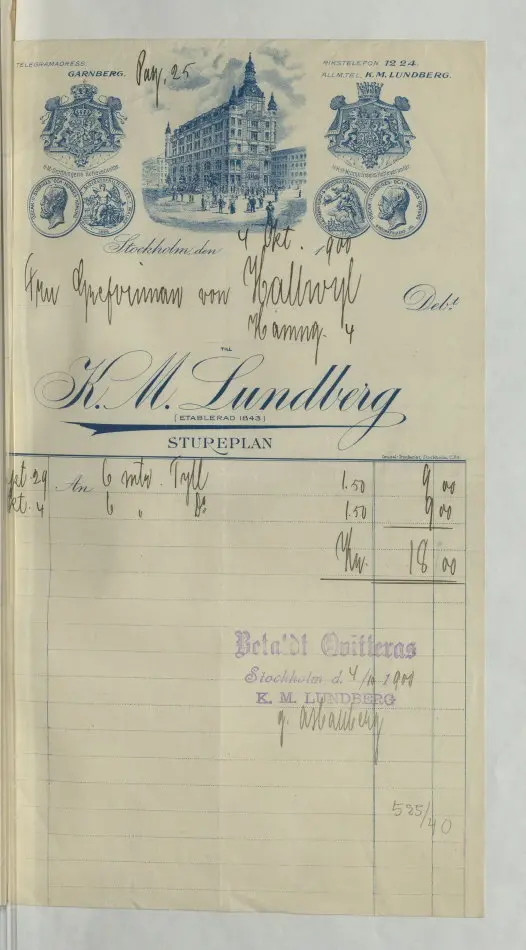 TELEGRAMADRESS:
GARNBERG.
Pag. 25
RIKSTELEFON 12 24.
ALLM. TEL. K. M. LUNDBERG.
Stockholm, den 4 Okt. 1900
Fru Grefvinnan von Hallwyl
Hamng. 4
Debt
TILL
K. M. Lundberg
(ETABLERAD 1843)
STUREPLAN
29 An 6 mtr. Tyll 1.50 9 00
kt. 4 6 " Do 1.50 9 00
Kr. 18 00
Betaldt Qvitteras
Stockholm d. 4/10 1900
K. M. LUNDBERG
525/40